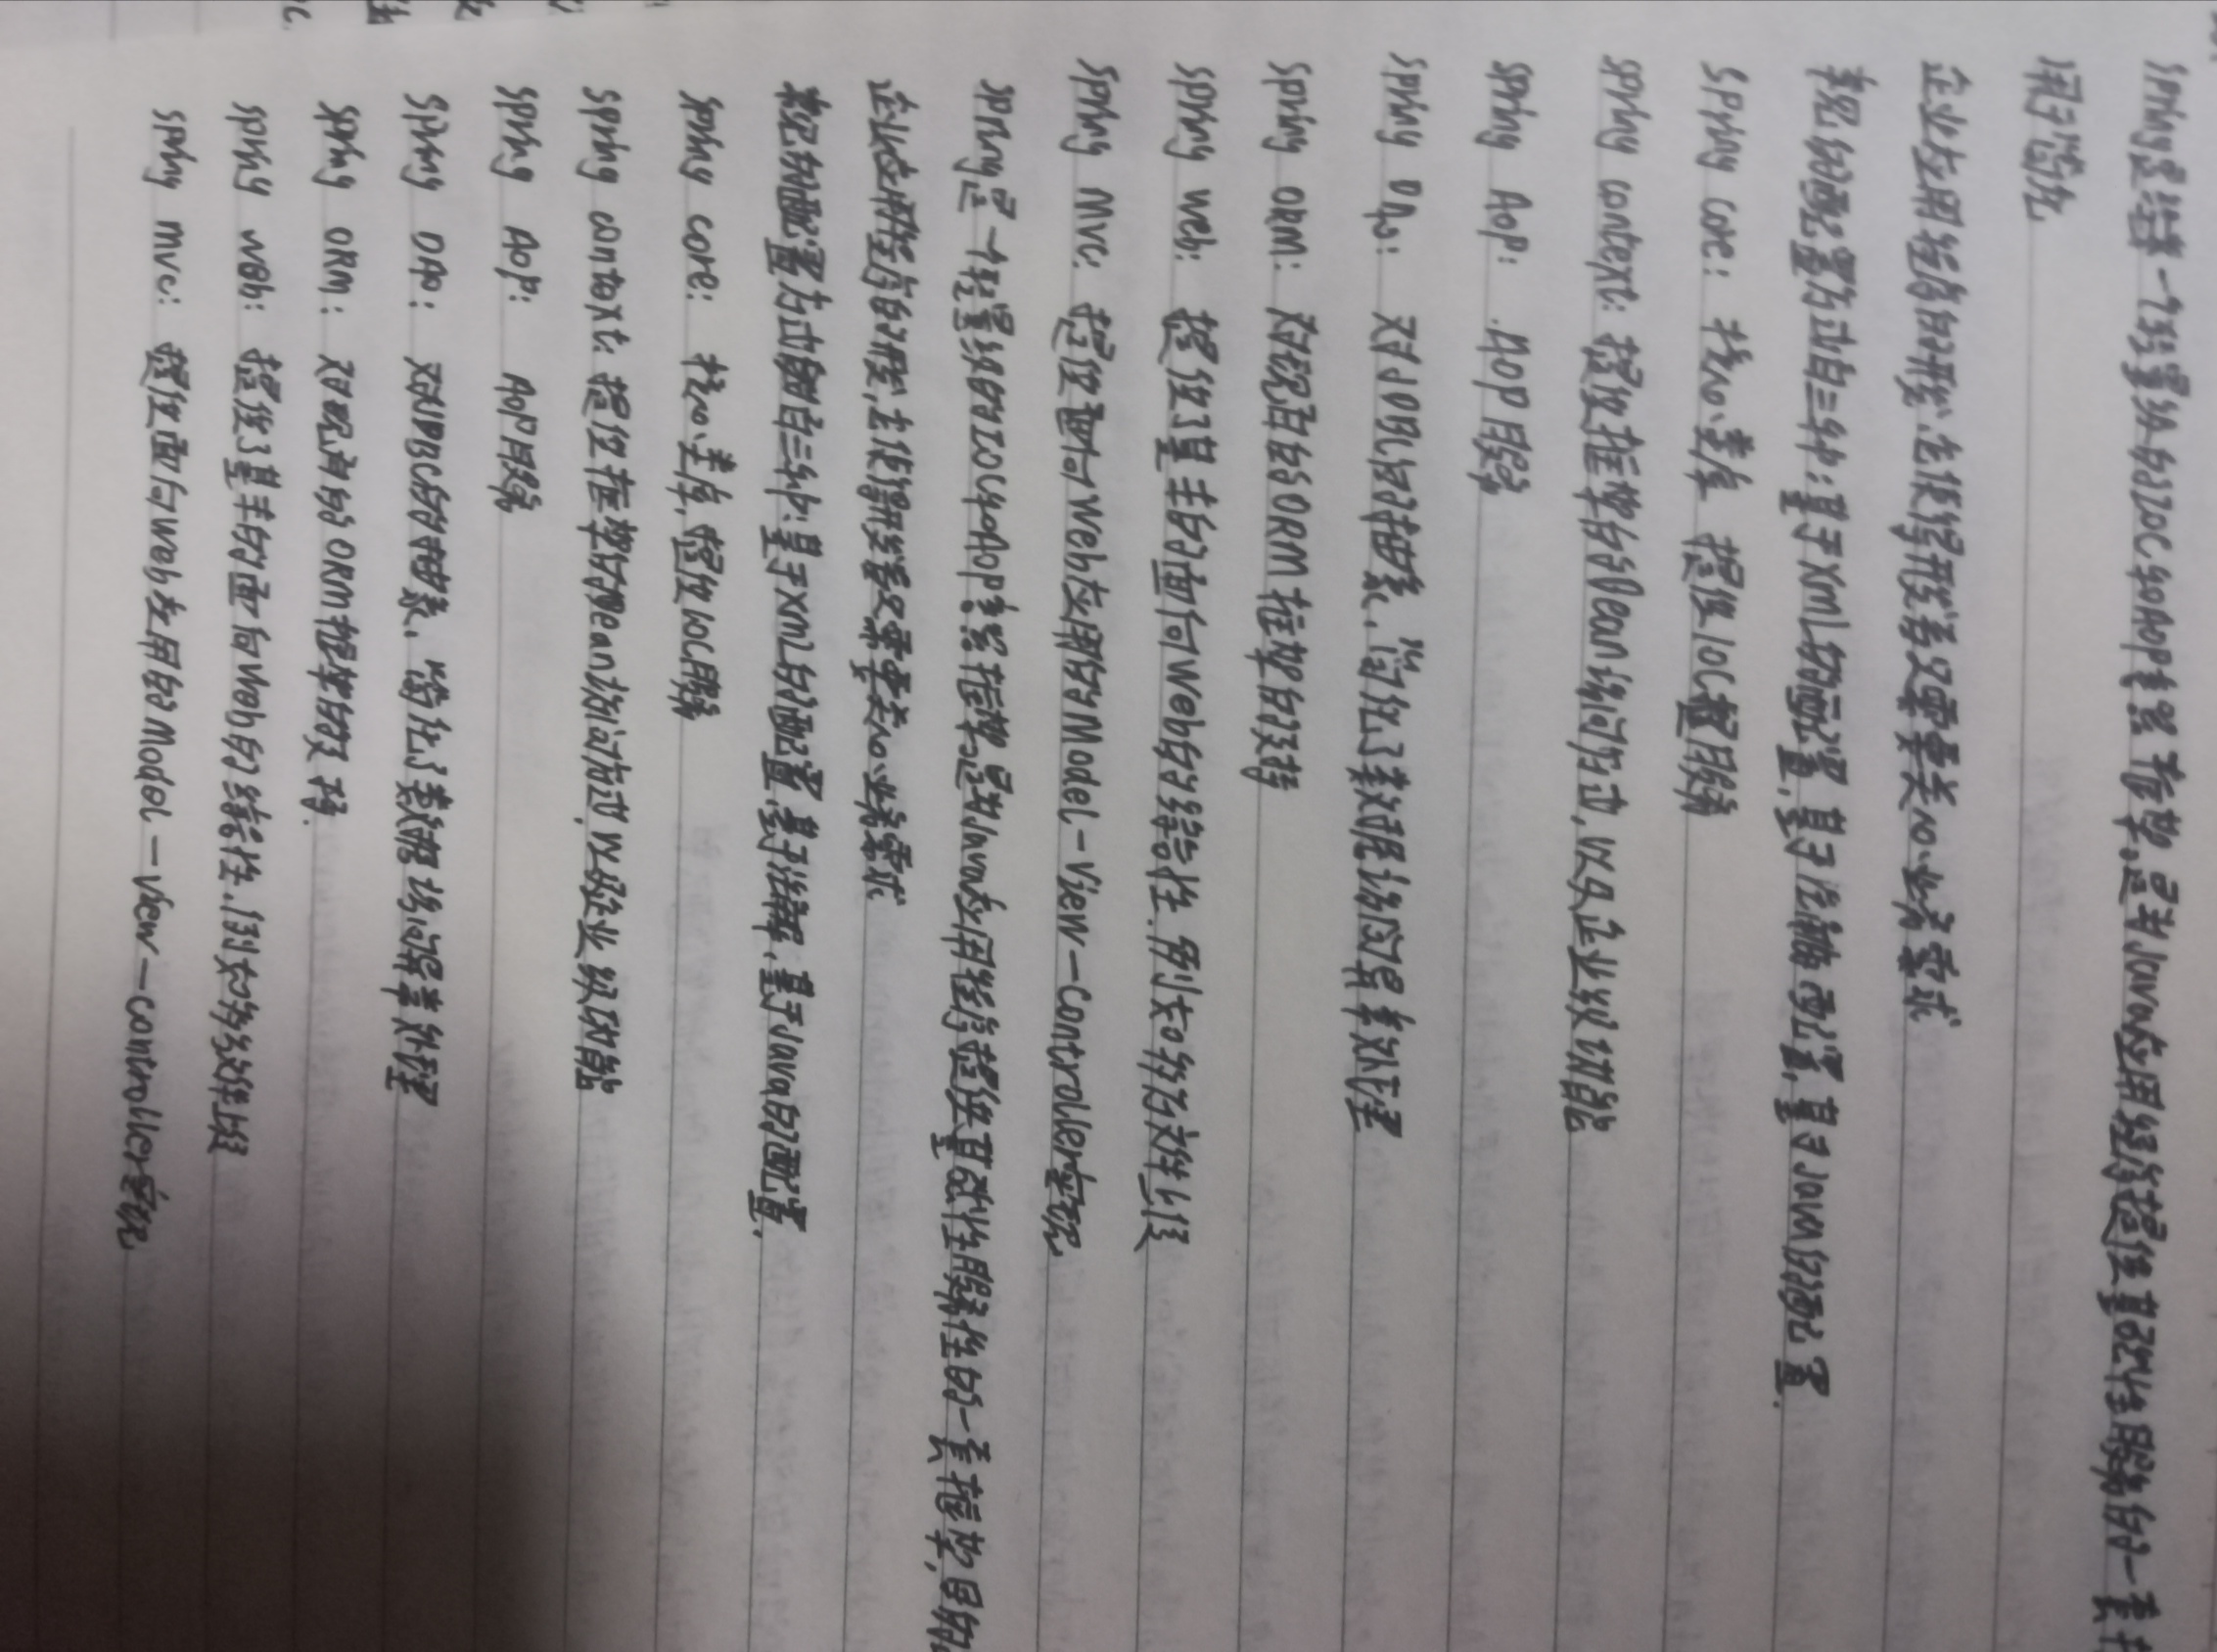 Spring是一个轻量级的IOC和AOP容器框架。是为Java应用程序提供基础性服务的一套
用于简化
企业应用程序的开发,它使得开发者只需要关心业务需求
常见的配置方式有三种:基于XML的配置,基于注解配置,基于Java的配置.
Spring Core: 核心类库 提供IOC服务
Spring Context: 提供框架的Bean访问方式,以及企业级功能
Spring AOP: AOP服务
Spring DAO: 对JDBC的抽象,简化了数据访问异常处理
Spring ORM: 对现有的ORM框架的支持
Spring Web: 提供了基本的面向Web的综合性.例如多方文件上传
Spring MVC: 提供面向Web应用的Model-View-Controller实现.
Spring是一个轻量级的IOC和AOP容器框架是为Java应用程序提供基础性服务性的一套框架,目的
企业应用程序的开发,它使得开发者只需要关心业务需求
常见的配置方式有三种:基于XML的配置,基于注解,基于Java的配置.
Spring Core: 核心类库,提供IOC服务
Spring Context: 提供框架的Bean访问方式,以及企业级功能
Spring AOP: AOP服务
Spring DAO: 对JDBC的抽象,简化了数据访问异常处理
Spring ORM: 对现有的ORM框架的支持.
Spring Web: 提供了基本的面向Web的综合性.例如多方文件上传
Spring MVC: 提供面向Web应用的Model-View-Controller实现.